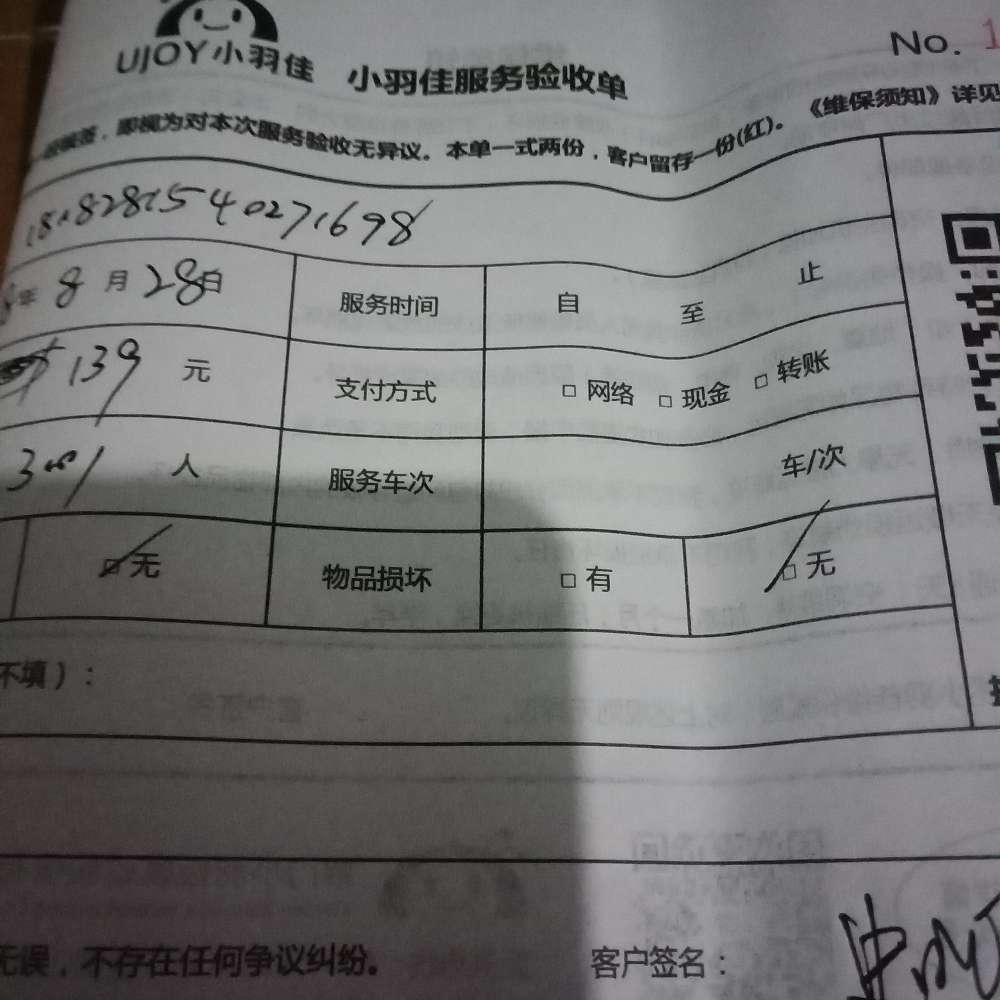 UJOY小羽佳 小羽佳服务验收单 No. 1
即视为对本次服务验收无异议。本单一式两份，客户留存一份(红)。《维保须知》详见
年 8 月 28 日 服务时间 自 至 止
139 元 支付方式 □ 网络 □ 现金 □ 转账
人 服务车次 车/次
□ 无 物品损坏 □ 有 □ 无
不填）：
无误，不存在任何争议纠纷。 客户签名：